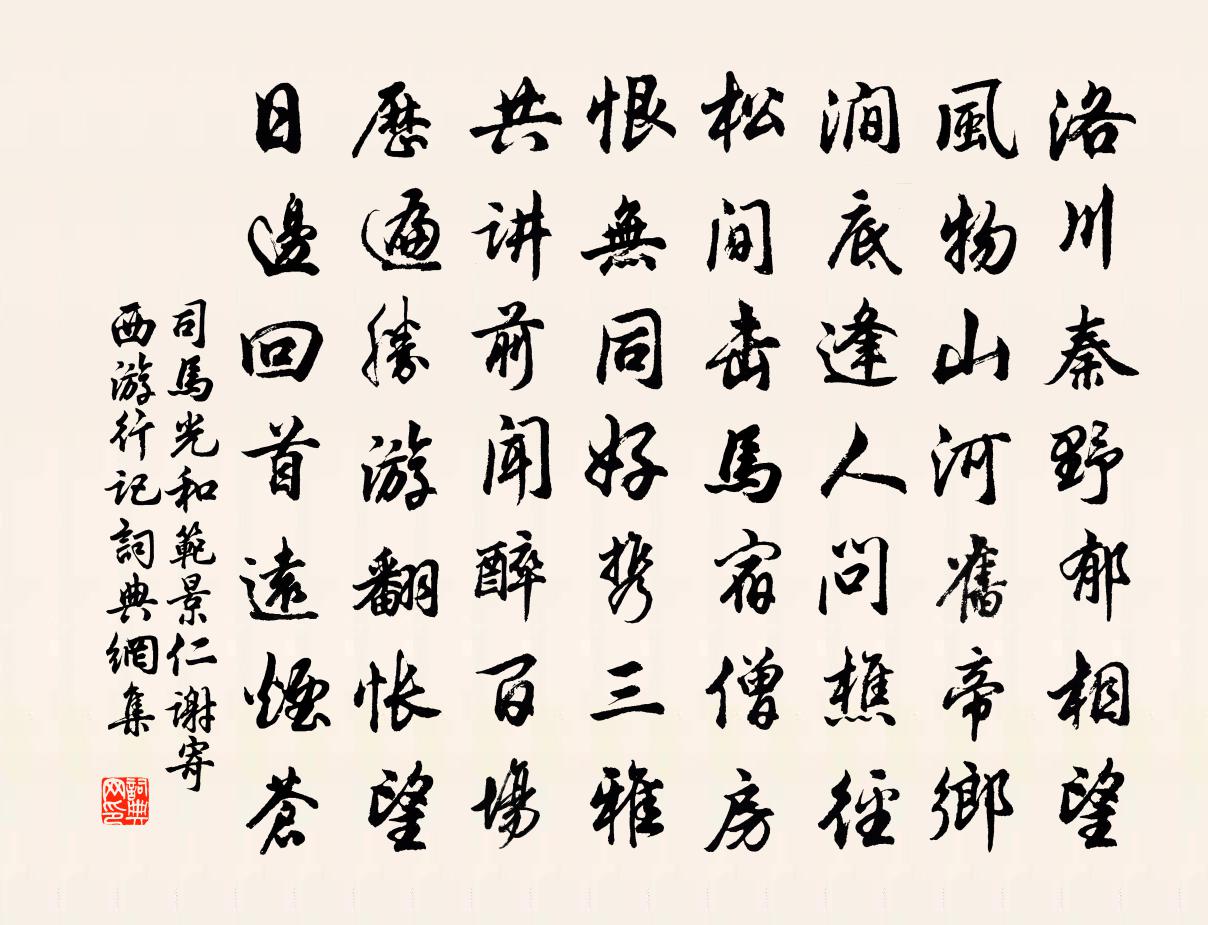 洛川秦野郁相望
風物山河舊帝鄉
澗底逢人問樵徑
松间击馬宿僧房
恨無同好携三雅
共讲前聞醉百場
歷遍勝游翻怅望
日邊回首遠煙蒼
司馬光和範景仁謝寄
西游行记詞典網集
詞典
网印